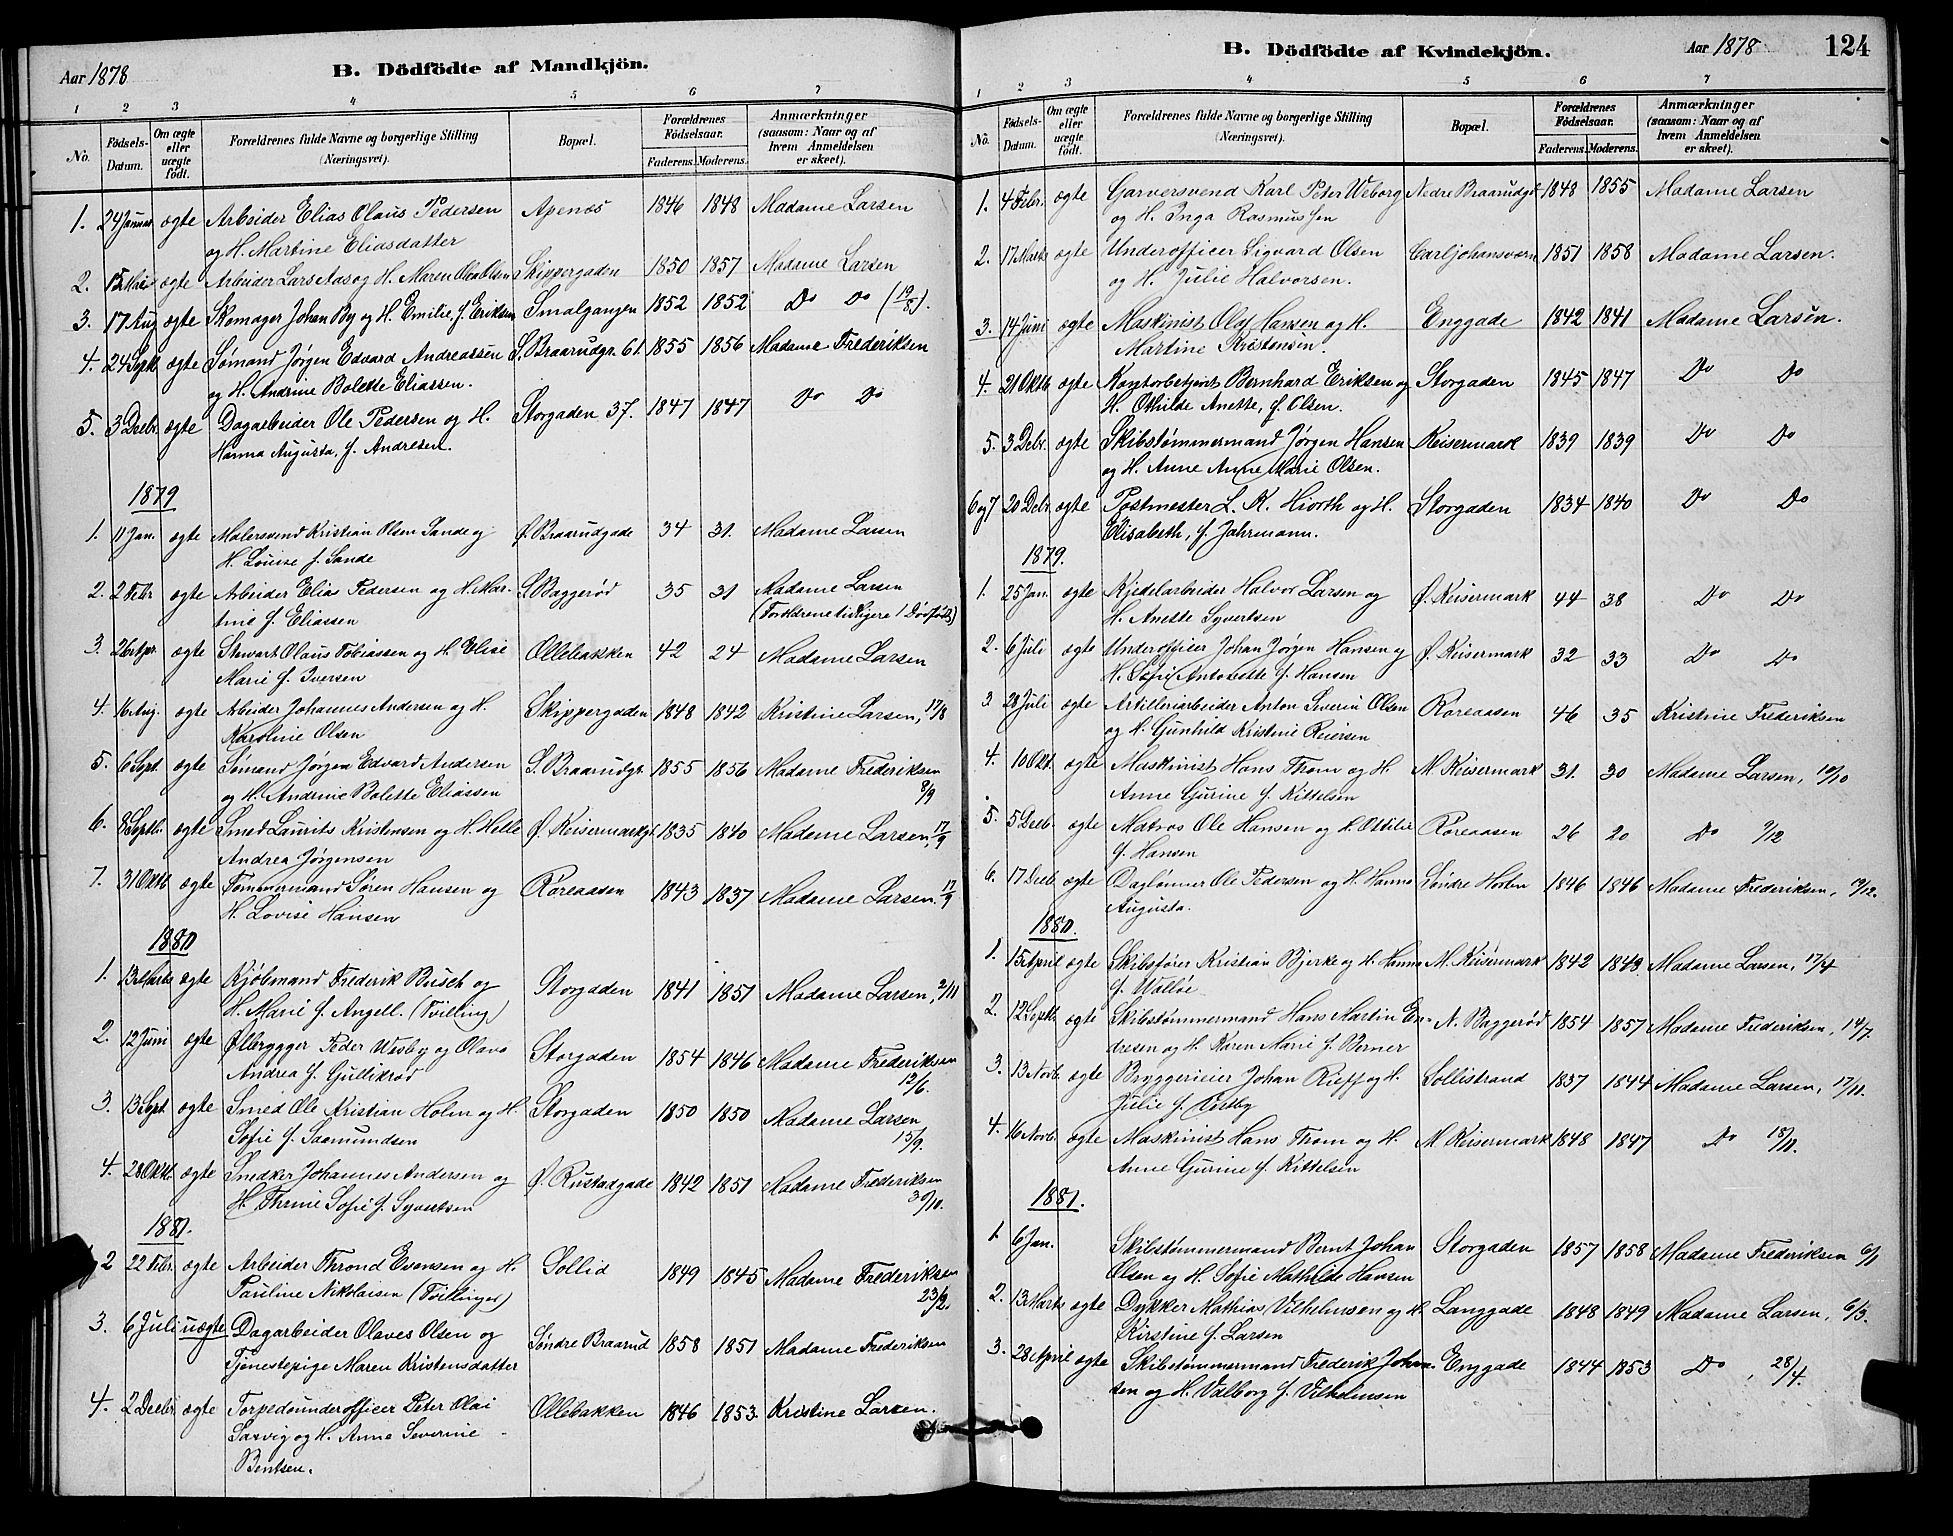 Aar 1878
B. Dödfödte af Mandkjön.
1 2 3 4 5 6 7
No.
Födsels-Datum.
Om ægte eller uægte födt.
Forældrenes fulde Navne og borgerlige Stilling (Næringsvei).
Bopæl.
Forældrenes Födselsaar.
Faderens. Moderens.
Anmærkninger (saasom: Naar og af hvem Anmeldelsen er skeet).
1. 24 Januar ægte Arbeider Elias Olaus Pedersen Apenæs 1846 1848 Madame Larsen
og H. Martine Eliasdatter
2. 15 ægte Arbeider Lars Aas og H. Maren Olsen Skippergaden 1850 1857 Madame Larsen
3. 17 Aug ægte Skomager Johan By og H. Emilie f. Eriksen Smalgangen 1852 1852 Do Do (19/8).
4. 24 Septb ægte Sømand Jørgen Edvard Andreassen S. Braarudgr. 61. 1855 1856 Madame Frederiksen
og H. Andrine Bolette Eliassen.
5. 3 Decbr. ægte Dagarbeider Ole Pedersen og H. Storgaden 37. 1847 1847 Do Do
Hanna Augusta, f. Andresen.
1879
1. 11 Jan. ægte Malersvend Kristian Olsen Sande og Ø. Braarudgade 34 31. Madame Larsen
H. Louise f. Sande
2. 2 Febr ægte Arbeider Elias Pedersen og H. Mar- S Baggerød 35 31 Madame Larsen
tine f. Eliassen (Forældrene tidligere 1 Dødfødt)
3. 26 Apr. ægte Stewart Olaus Tobiassen og H. Elise Ollebakken 42 24 Madame Larsen
Marie f. Iversen
4. 16 Aug. ægte Arbeider Johannes Andersen og H. Skippergaden 1848 1842 Kristine Larsen, 17/8
Karoline Olsen
5. 6 Sept. ægte Sømand Jørgen Edvard Andersen S. Braarudgr. 1855 1856 Madame Frederiksen
og H. Andrine Bolette Eliassen 8/9
6. 8 Septb. ægte Smed Laurits Kristensen og H. Helle Ø. Keisermarkgt. 1835 1840 Madame Larsen, 17/9
Andrea Jørgensen
7. 31 Oktb ægte Tømmermand Søren Hansen og Røreaasen 1843 1837 Madame Larsen. 17/9
H. Lovise Hansen
1880
1. 13 Marts ægte Kjøbmand Frederik Busch og Storgaden 1841 1851 Madame Larsen, 2/11
H. Marie f. Angell. (Tvilling)
2. 12 Juni ægte Ølbrygger Peder Wesby og Olava Storgaden 1854 1846 Madame Frederiksen
Andrea f. Gullikrød 12/6.
3. 13 Sept. ægte Smed Ole Kristian Holm og H. Storgaden 1850 1850 Madame Larsen
Sofie f. Saamundsen 15/9.
4. 28 Oktb. ægte Snedker Johannes Andersen og Ø. Rustadgade 1842 1851 Madame Frederiksen
H. Thrine Sofie f. Syvertsen 30/10.
1881.
2 22 Febr. ægte Arbeider Thrond Evensen og H. Sollid 1849 1845 Madame Frederiksen
Pauline Nikolaisen (Tvillinger) 23/2.
3. 6 Juli uægte Dagarbeider Olaves Olsen og Søndre Braarud 1858 1851 Madame Frederiksen
Tjenestepige Maren Kristensdatter
4. 2 Decbr. ægte Torpedounderofficer Peter Olai Ollebakken 1846 1853. Kristine Larsen.
og H. Anne Severine
Bentsen.
B. Dödfödte af Kvindekjön.
Aar 1878
124
1 2 3 4 5 6 7
No.
Födsels-Datum.
Om ægte eller uægte födt.
Forældrenes fulde Navne og borgerlige Stilling (Næringsvei).
Bopæl.
Forældrenes Födselsaar.
Faderens. Moderens.
Anmærkninger (saasom: Naar og af hvem Anmeldelsen er skeet).
1. 4 Febr. ægte Garversvend Karl Peter Weborg Nedre Braarudgt 1848 1855 Madame Larsen
og H. Inga Rasmussen
2. 17 Marts ægte Underofficer Sigvard Olsen Carljohansværn 1851 1858 Madame Larsen.
og H. Julie Halvorsen.
3. 14 Juni ægte Maskinist Olaf Hansen og H. Enggade 1842 1841 Madame Larsen.
Martine Kristensen.
4. 21 Oktb ægte Kontorbetjent Bernhard Eriksen og Storgaden 1845 1847 Do Do
H. Othilde Anette, f. Olsen.
5. 3 Debr. ægte Skibstømmermand Jørgen Hansen Keisermark 1839 1839 Do Do
og H. Anne Anne Marie Olsen.
6 og 7 20 Debr. ægte Postmester L. K. Hiorth og H. Storgaden 1834 1840 Do Do
Elisabeth, f. Jahrmann.
1879.
1. 25 Jan. ægte Kjedelarbeider Halvor Larsen og Ø. Keisermark 44 38 Do Do
H. Anette Syvertsen
2. 6 Juli ægte Underofficer Johan Jørgen Hansen og Ø. Keisermark 32 33 Do Do
H. Sofie Antonette f. Hansen
3. 28 Juli ægte Artilleriarbeider Anton Severin Olsen Røreaasen 46 35 Kristine Frederiksen
og H. Gunhild Kristine Reiersen
4. 10 Okt. ægte Maskinist Hans Thom og H. M. Keisermark 31. 30 Madame Larsen, 10/10
Anne Gurine f. Kittelsen
5. 5 Decb. ægte Matros Ole Hansen og H. Ottilie Røreaasen 26 20 Do 9/12
f. Hansen
6. 17 Decb. ægte Daglønner Ole Pedersen og H. Hanna Søndre Horten 1846 1846 Madame Frederiksen, 19/12.
Augusta.
1880.
1. 15 April ægte Skibsfører Kristian Bjerke og H. Hanna M. Keisermark 1842 1848 Madame Larsen, 17/4
f. Walløe
2. 12 Septb. ægte Skibstømmermand Hans Martin En- N. Baggerød 1854 1857 Madame Frederiksen, 14/7.
dresen og H. Karen Marie f. Berner
3. 13 Novb. ægte Bryggerieier Johan Rieff og H. Sollistrand 1837 1844 Madame Larsen, 17/11.
Julie f.
4. 16 Novb. ægte Maskinist Hans Thom og H. M Keisermark 1848 1847 Do 18/11.
Anne Gurine f. Kittelsen
1881.
1. 6 Jan. Skibstømmermand Bernt Johan Storgaden 1857 1858 Madame Frederiksen 6/1
Olsen og H. Sofie Mathilde Hansen
2. 13 Marts ægte Dykker Mathias Vilhelmsen og H. Langgade 1848 1849 Madame Larsen, 6/3.
Kirstine f. Larsen
3. 28 April ægte Skibstømmermand Frederik Johan- Enggade 1844 1853 Do , 28/4.
sen og H. Valborg f. Vilhelmsen